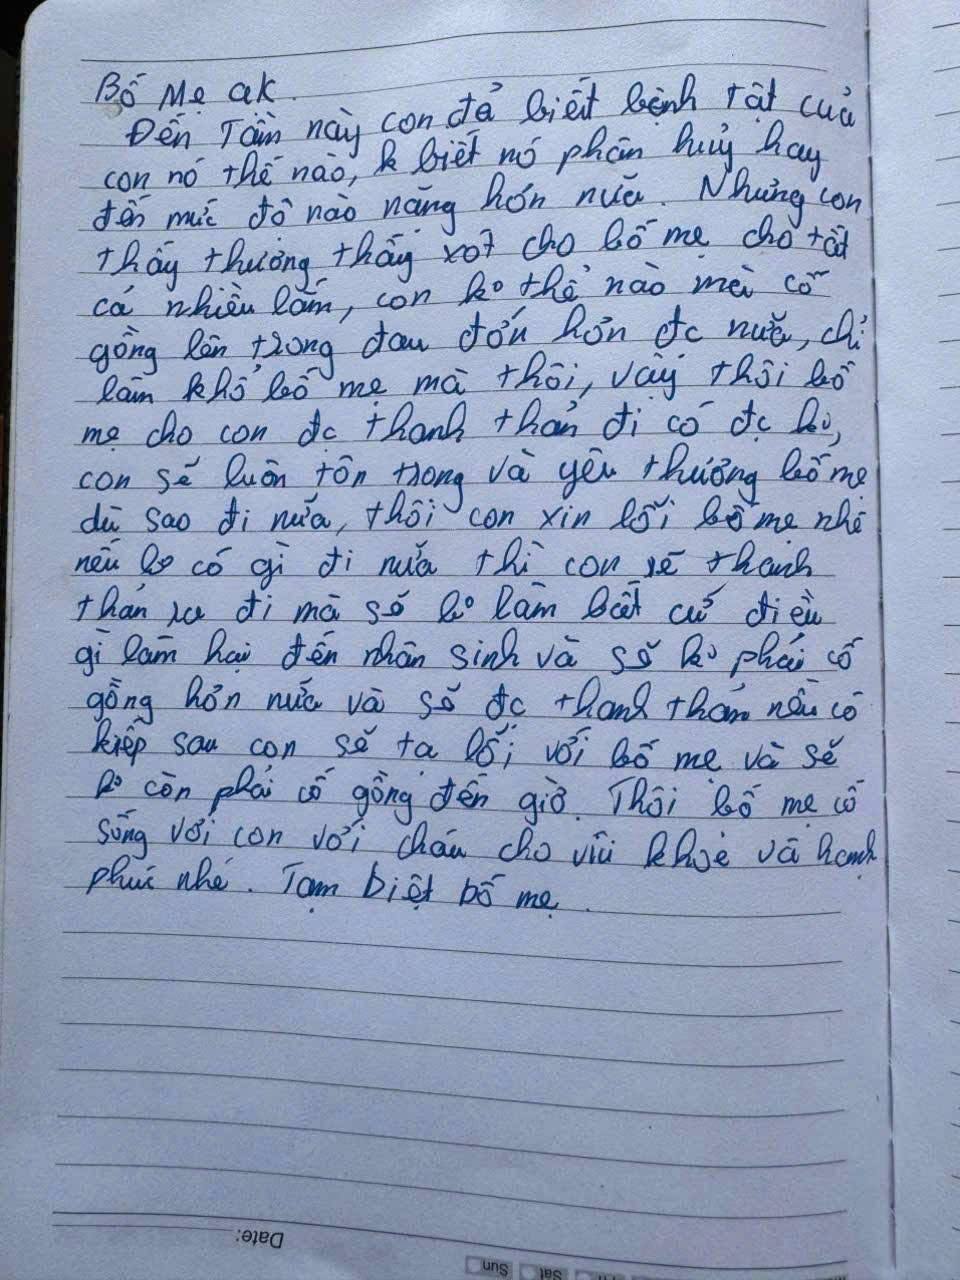 Bố Mẹ ak.
Đến Tầm này con đả biết bệnh tật của
con nó thế nào, k biết nó phân huỷ hay
đến mức độ nào nặng hơn nữa. Nhưng con
thấy thương thấy xót cho bố mẹ cho tất
cả nhiều lắm, con ko thể nào mà cố
gồng lên trong đau đớn hơn đc nữa, chỉ
làm khổ bố mẹ mà thôi, vậy thôi bố
mẹ cho con đc thanh thản đi có đc ko,
con sẽ luôn tôn trọng và yêu thương bố mẹ
dù sao đi nữa, thôi con xin lỗi bố mẹ nhé
nếu ko có gì đi nữa thì con sẽ thanh
thản ra đi mà sẽ ko làm bất cứ điều
gì làm hại đến nhân sinh và sẽ ko phải cố
gồng hơn nữa và sẽ đc thanh thản nếu có
kiếp sau con sẽ tạ lỗi với bố mẹ và sẽ
ko còn phải cố gồng đến giờ. Thôi bố mẹ cố
sống với con với cháu cho vui khoẻ và hạnh
phúc nhé. Tạm biệt bố mẹ.
Date:
Sun
Sat